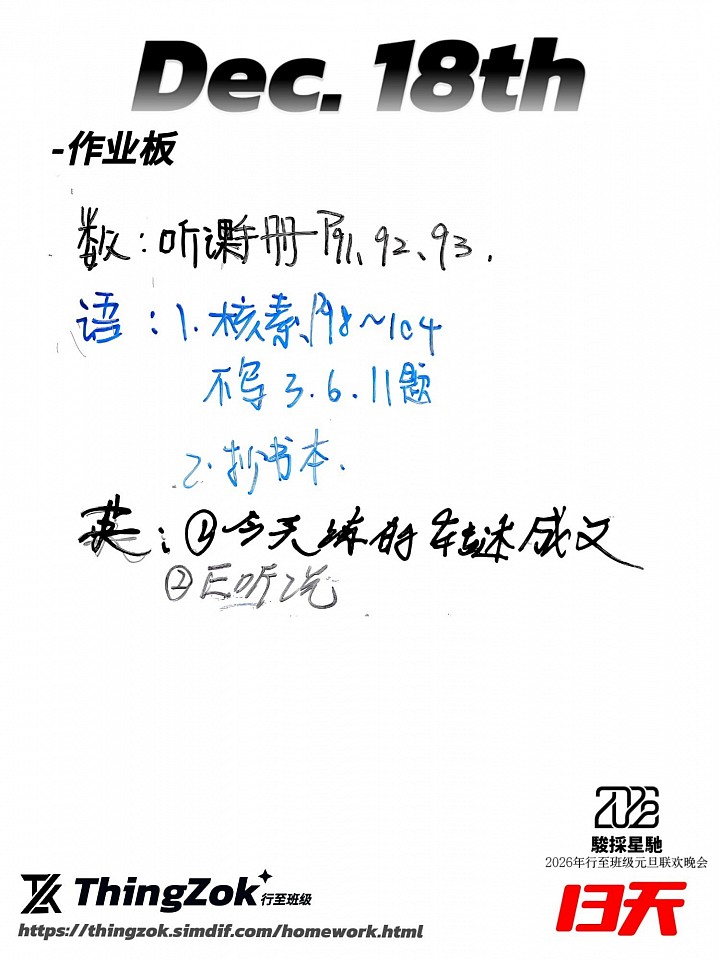 Dec. 18th
-作业板
数：听课手册 P91、92、93.
语：1. 核素 P98~104
不写 3.6.11题
2. 抄书本.
英：①今天练的转述成文
②E听说
2026
駿採星馳
2026年行至班级元旦联欢晚会
13天
ThingZok 行至班级
https://thingzok.simdif.com/homework.html